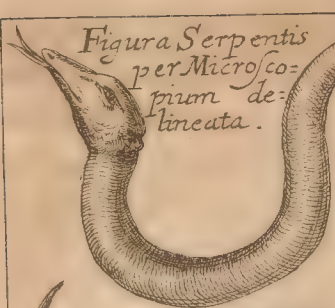 Figura Serpentis
per Microſco=
pium de=
lineata.